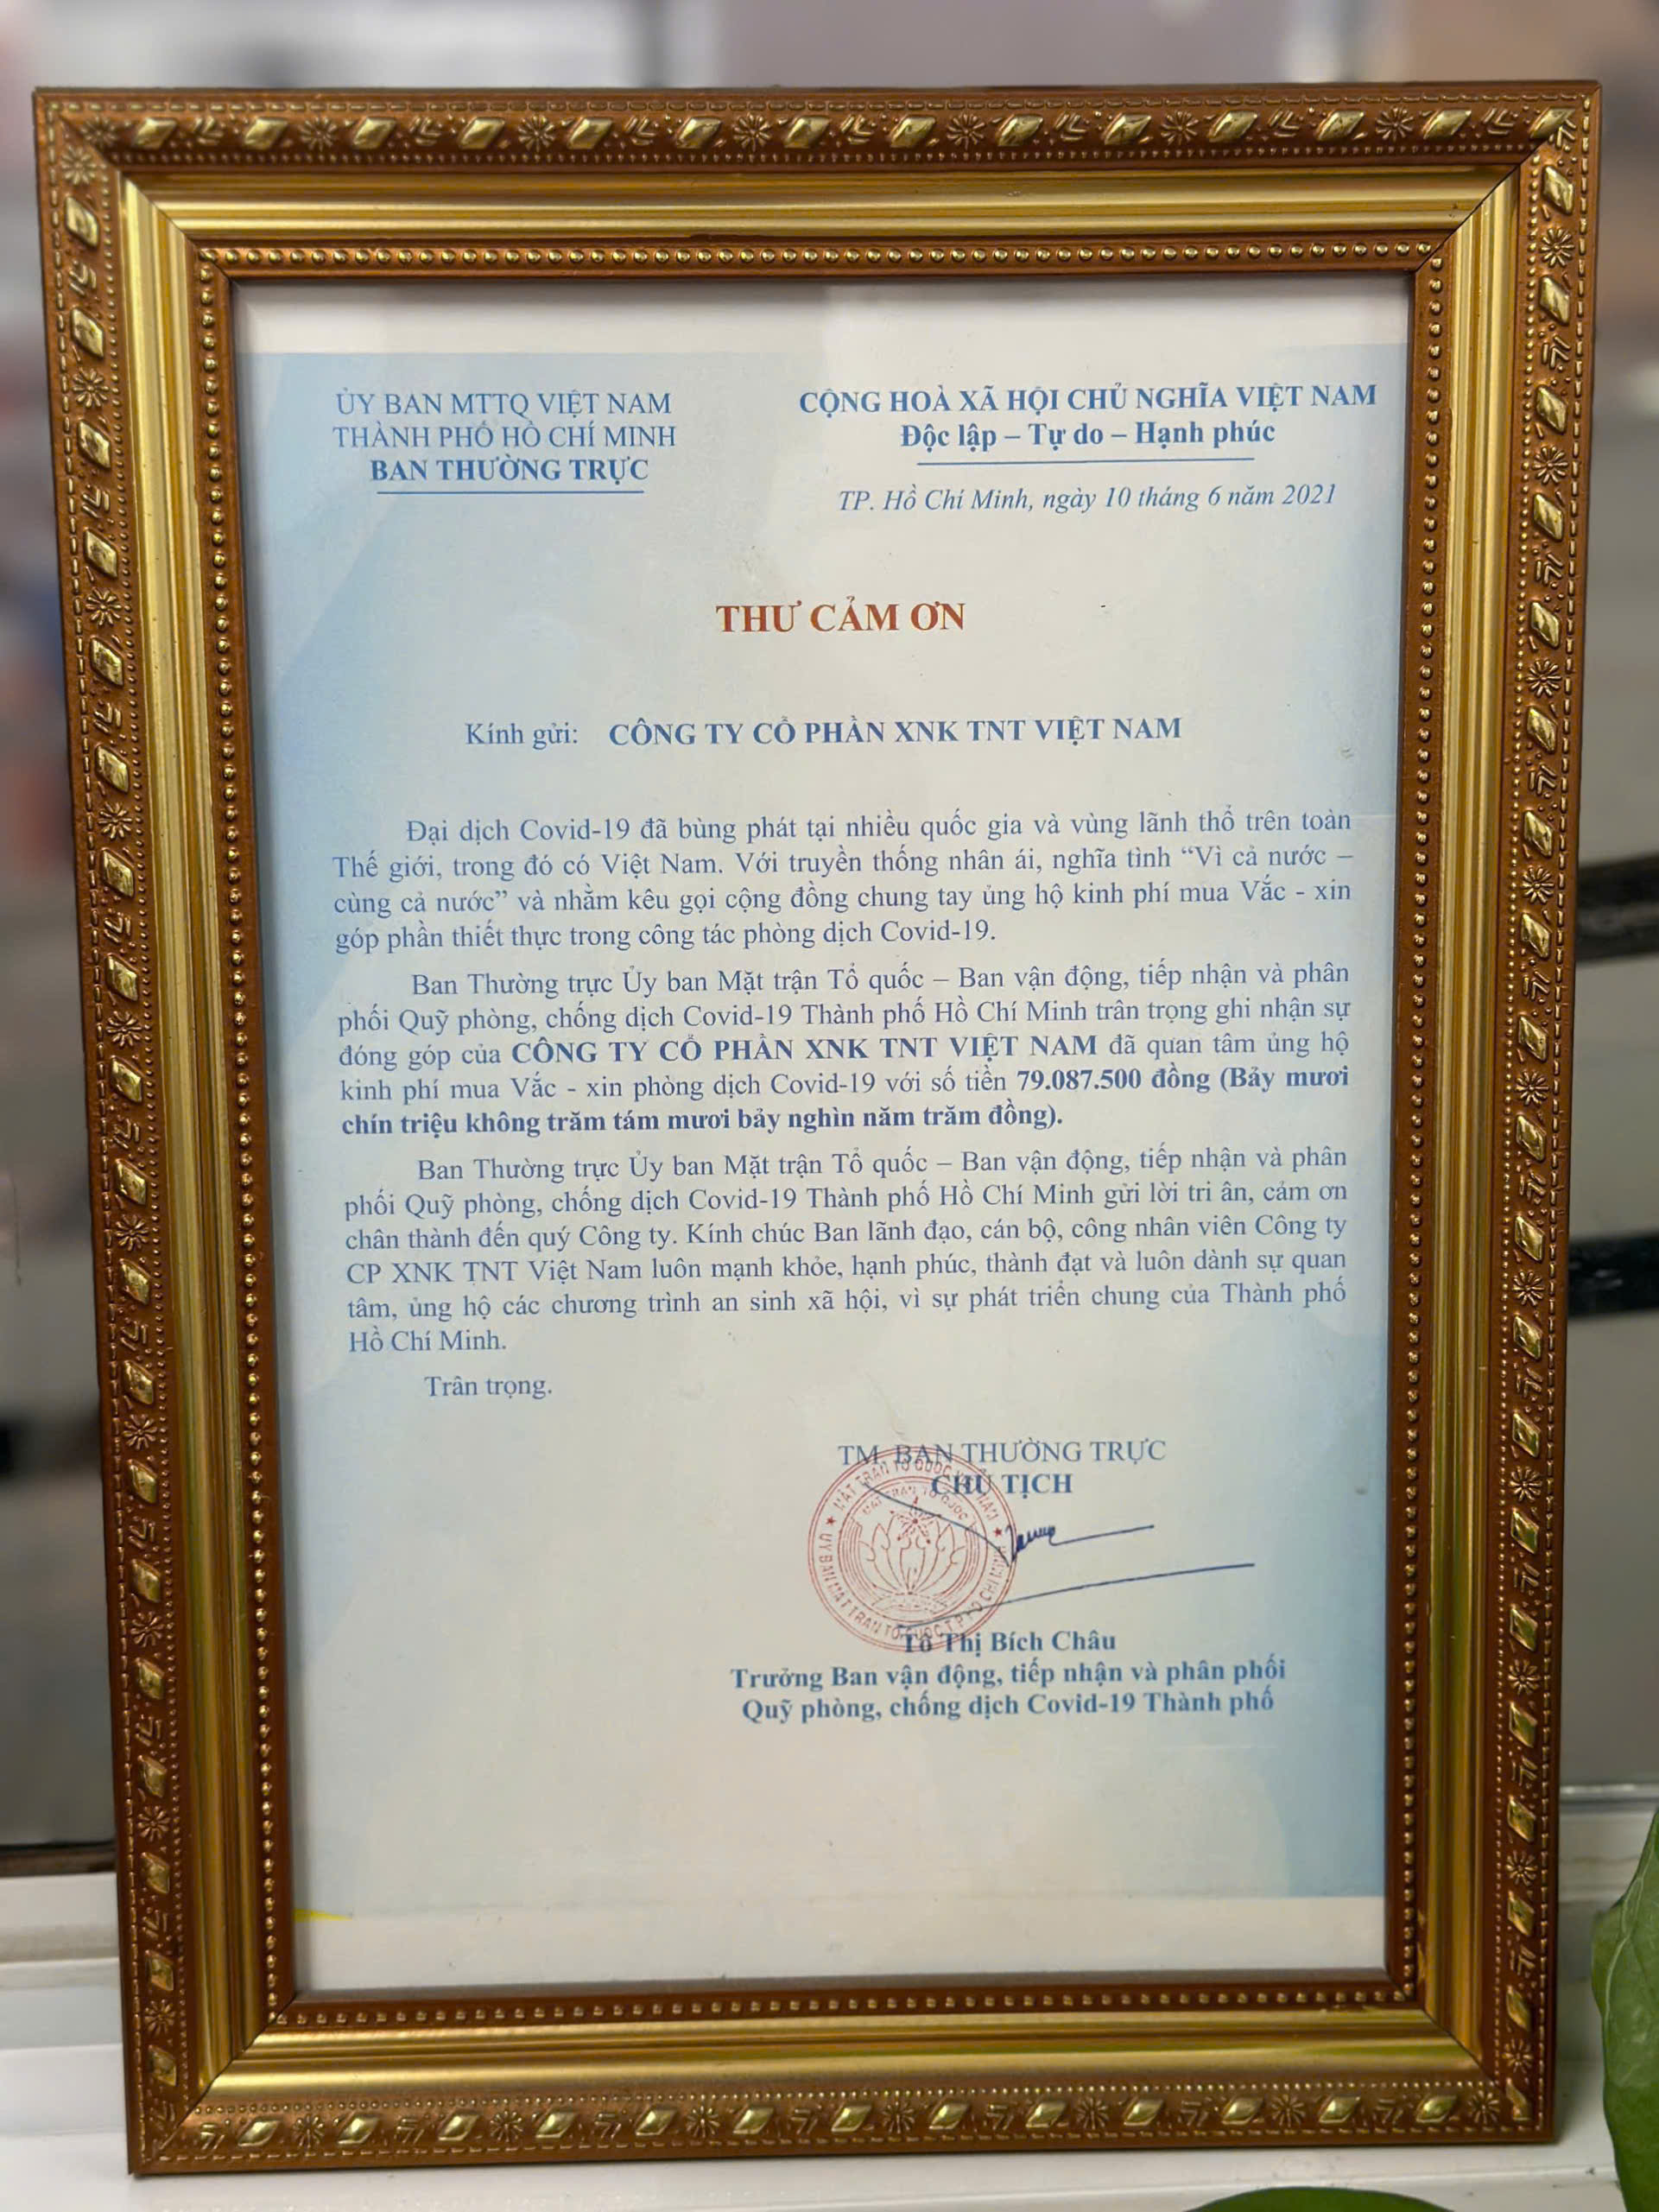 ỦY BAN MTTQ VIỆT NAM
THÀNH PHỐ HỒ CHÍ MINH
BAN THƯỜNG TRỰC
CỘNG HOÀ XÃ HỘI CHỦ NGHĨA VIỆT NAM
Độc lập – Tự do – Hạnh phúc
TP. Hồ Chí Minh, ngày 10 tháng 6 năm 2021
THƯ CẢM ƠN
Kính gửi: CÔNG TY CỔ PHẦN XNK TNT VIỆT NAM
Đại dịch Covid-19 đã bùng phát tại nhiều quốc gia và vùng lãnh thổ trên toàn
Thế giới, trong đó có Việt Nam. Với truyền thống nhân ái, nghĩa tình “Vì cả nước –
cùng cả nước” và nhằm kêu gọi cộng đồng chung tay ủng hộ kinh phí mua Vắc - xin
góp phần thiết thực trong công tác phòng dịch Covid-19.
Ban Thường trực Ủy ban Mặt trận Tổ quốc – Ban vận động, tiếp nhận và phân
phối Quỹ phòng, chống dịch Covid-19 Thành phố Hồ Chí Minh trân trọng ghi nhận sự
đóng góp của CÔNG TY CỔ PHẦN XNK TNT VIỆT NAM đã quan tâm ủng hộ
kinh phí mua Vắc - xin phòng dịch Covid-19 với số tiền 79.087.500 đồng (Bảy mươi
chín triệu không trăm tám mươi bảy nghìn năm trăm đồng).
Ban Thường trực Ủy ban Mặt trận Tổ quốc – Ban vận động, tiếp nhận và phân
phối Quỹ phòng, chống dịch Covid-19 Thành phố Hồ Chí Minh gửi lời tri ân, cảm ơn
chân thành đến quý Công ty. Kính chúc Ban lãnh đạo, cán bộ, công nhân viên Công ty
CP XNK TNT Việt Nam luôn mạnh khỏe, hạnh phúc, thành đạt và luôn dành sự quan
tâm, ủng hộ các chương trình an sinh xã hội, vì sự phát triển chung của Thành phố
Hồ Chí Minh.
Trân trọng.
TM. BAN THƯỜNG TRỰC
CHỦ TỊCH
Tô Thị Bích Châu
Trưởng Ban vận động, tiếp nhận và phân phối
Quỹ phòng, chống dịch Covid-19 Thành phố